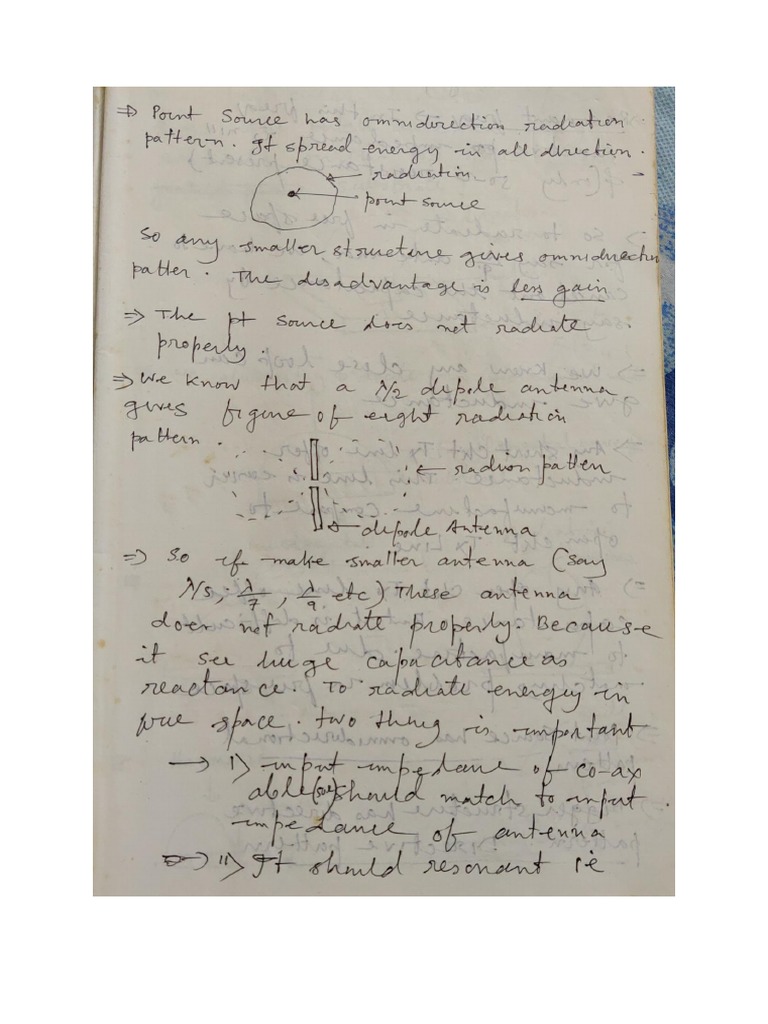 ⇒ Point Source has omnidirection radiation
pattern. It spread energy in all direction.
← radiation
← point source
So any smaller structure gives omnidirection
patter. The disadvantage is less gain
⇒ The pt source does not radiate
properly.
⇒ We know that a λ/2 dipole antenna
gives figure of eight radiation
pattern.
← radion patten
← dipole Antenna
⇒ So if make smaller antenna (say
λ/5, λ/7, λ/9 etc) These antenna
does not radiate properly. Because
it see huge capacitance as
reactance. To radiate energy in
free space. two thing is important
→ i) input impedance of co-ax
able(50Ω) should match to input
impedance of antenna
→ ii) It should resonant i.e